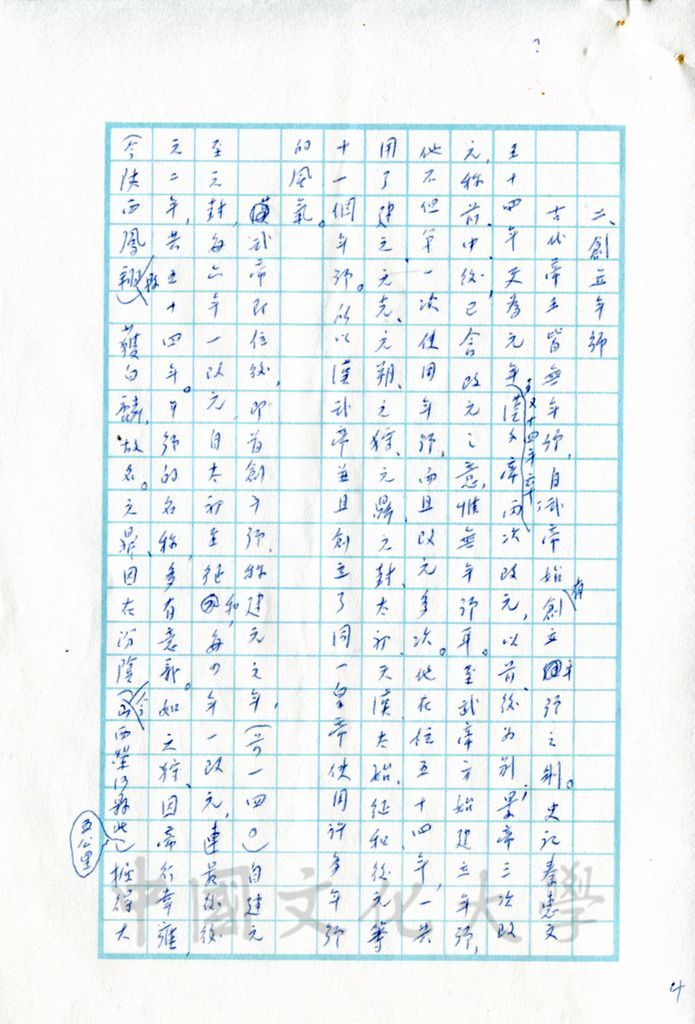 二、創立年號
古代帝王皆無年號,自武帝始創立年號之制。史記秦惠文
王十四年更為元年,漢文帝兩次改元,以前後為別,景帝三次改
元,称前中後,已含改元之意,惟無年號耳。至武帝方始建立年號,
他不但第一次使用年號,而且改元多次。他在位五十四年,一共
用了建元、元光、元朔、元狩、元鼎、元封、太初、天漢、太始、征和、後元等
十一個年號。所以漢武帝並且創立了同一皇帝使用許多年號
的風氣。
武帝即位後,即首創年號,称建元元年,(前一四〇)自建元
至元封,每六年一改元,自太初至征和,每四年一改元,連最後後
元二年,共五十四年。年號的名称,多有意義。如元狩,因帝行幸雍,
(今陝西鳳翔縣)獲白麟,故名。元鼎,因在汾陰(今山西榮河縣北)掘得大
五公里
有
中國文化大學
4